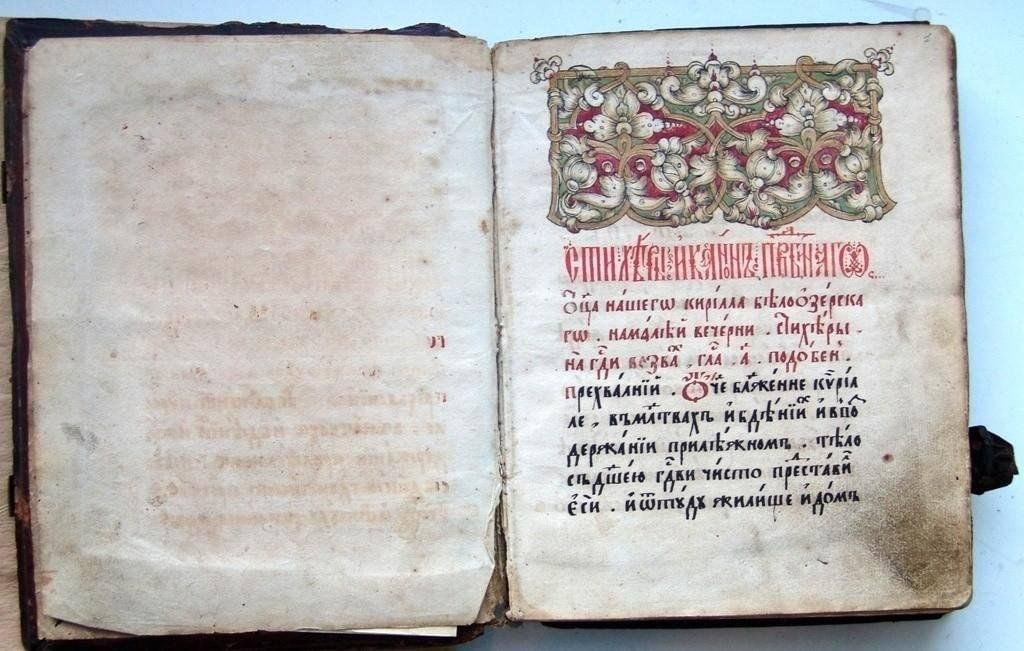 стихѣры и канѡнъ прпⷣбнагѡ
ѻц҃а нашегѡ кирилла бѣлоѻзерска
гѡ . на малѣй вечерни . стихѣры .
на гдⷭ҇и возва . гла . а҃ . подобен .
прехвалнїи . ѻч҃е блаженне кѷрїа
ле , въ мл҃твахъ и бдѣнїи и въ по
держанїи прилѣжномъ . тѣло
съ дш҃ею гдⷭ҇ви чисто престави
еси . и ѿтꙋдꙋ жилище и домъ